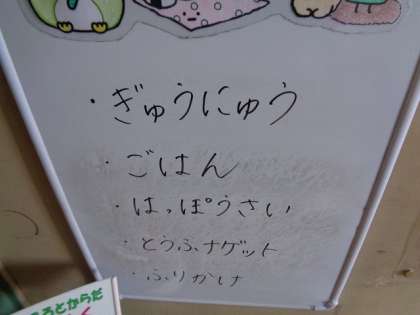 ・ぎゅうにゅう
・ごはん
・はっぽうさい
・とうふナゲット
・ふりかけ
ころとからだ